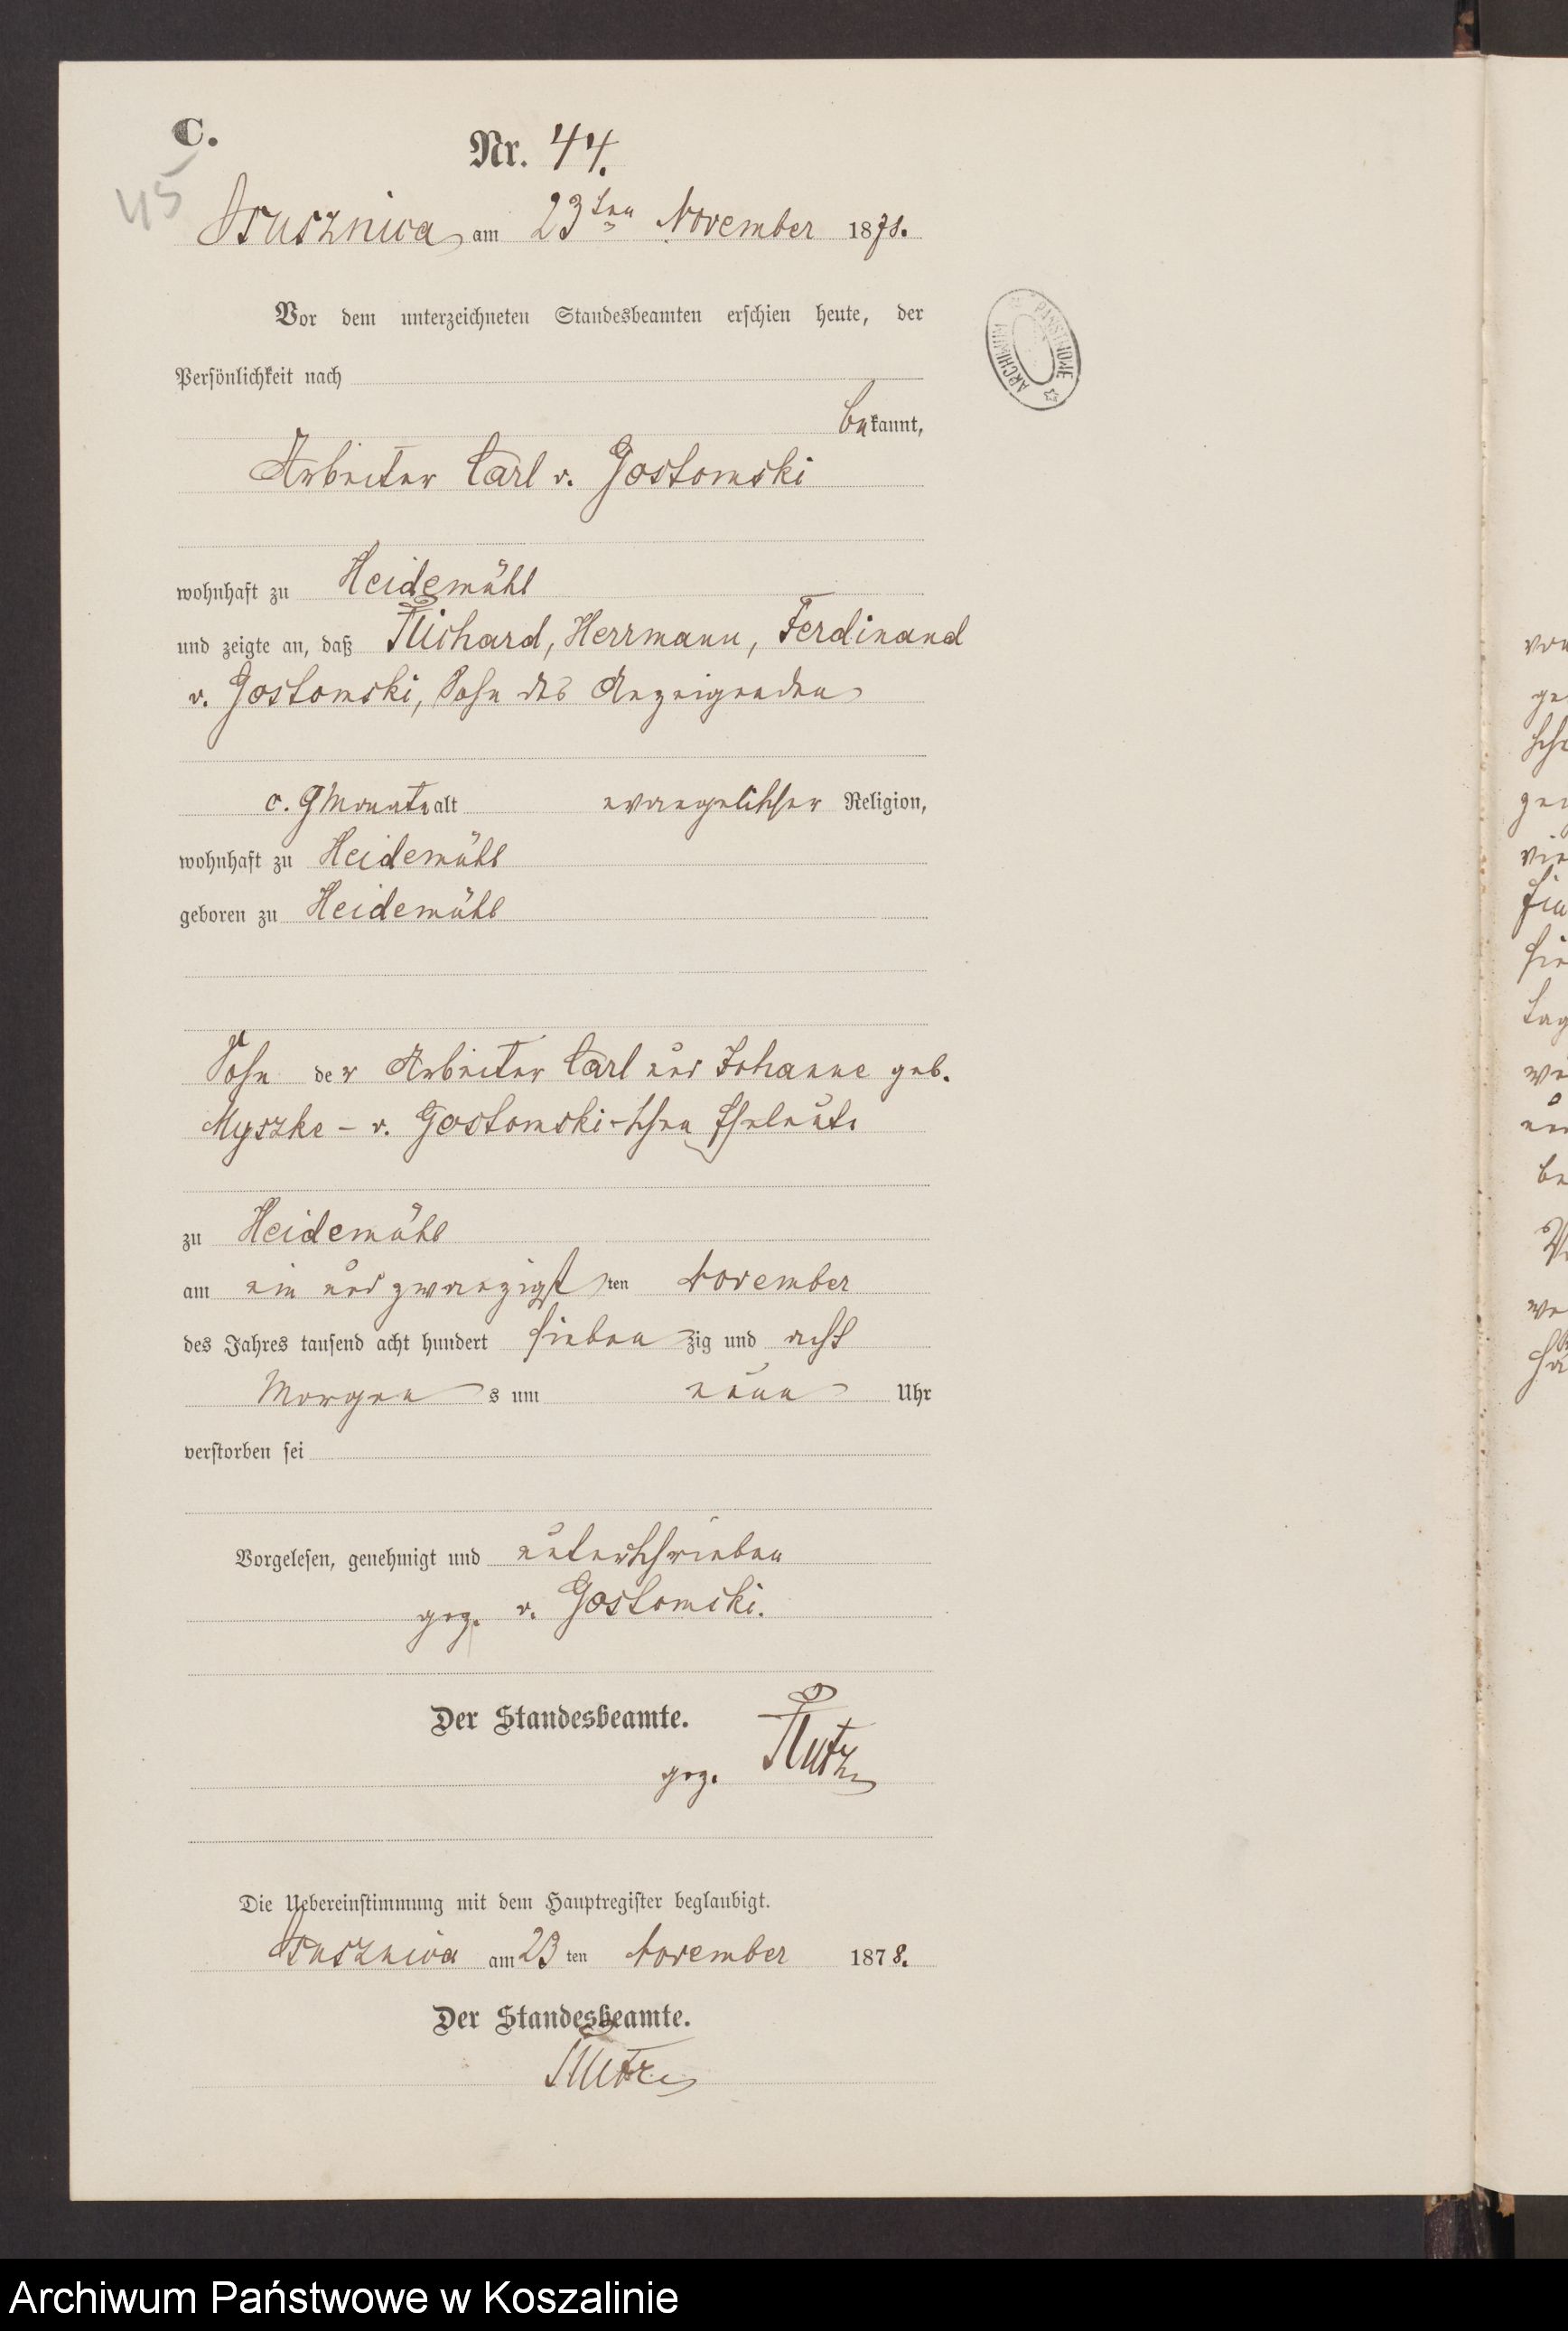 C.
Nr. 44.
45
Ossusznica am 23ten November 1878.
Vor dem unterzeichneten Standesbeamten erschien heute, der
Persönlichkeit nach
bekannt,
Arbeiter Carl v. Gostomski
wohnhaft zu Heidemühl
und zeigte an, daß Richard, Herrmann, Ferdinand
v. Gostomski, Sohn des Anzeigenden
c. 9 Monate alt evangelischer Religion,
wohnhaft zu Heidemühl
geboren zu Heidemühl
Sohn der Arbeiter Carl und Johanne geb.
Myszke - v. Gostomski-schen Eheleute
zu Heidemühl
am ein und zwanzigsten November
des Jahres tausend acht hundert siebenzig und acht
Morgens um neun Uhr
verstorben sei
Vorgelesen, genehmigt und unterschrieben
gez. v. Gostomski.
Der Standesbeamte.
gez.
Die Uebereinstimmung mit dem Hauptregister beglaubigt.
Ossusznica am 23ten November 1878.
Der Standesbeamte.
ARCHIWUM PAŃSTWOWE
von
Archiwum Państwowe w Koszalinie